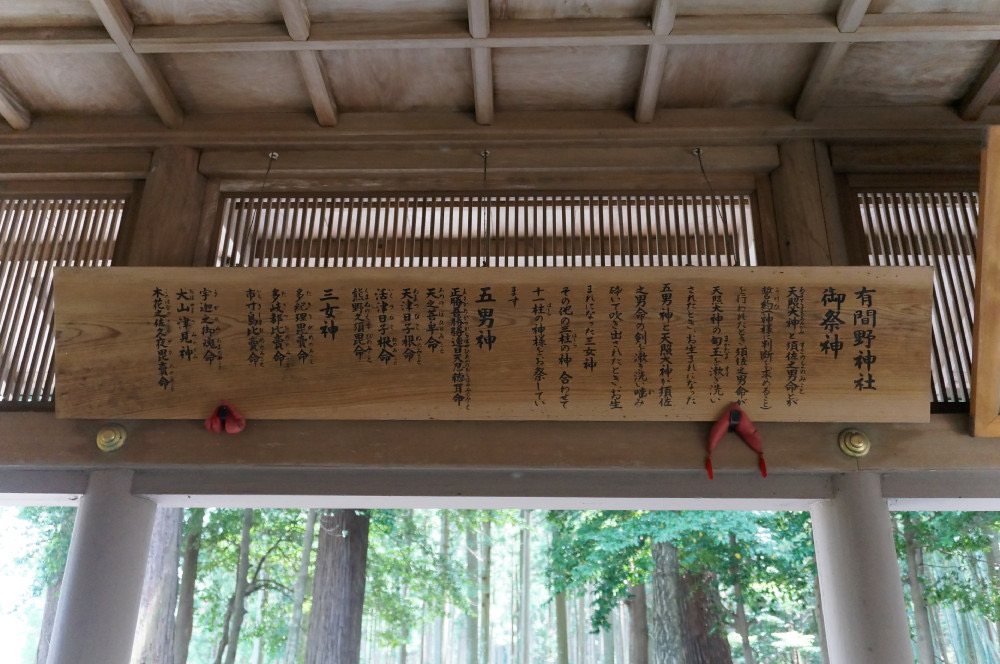 有間野神社
御祭神
天照大神と須佐之男命とが
誓約(神様に判断を求めること)
を行われたとき須佐之男命が
天照大神の勾玉を漱ぎ洗い
されたときにお生まれになった
五男神と天照大神が須佐
之男命の剣を漱ぎ洗い噛み
砕いて吹き出されたときにお生
まれになった三女神
その他の三柱の神 合わせて
十一柱の神様をお祭してい
ます
五男神
正勝吾勝勝速日天忍穂耳命
天之菩卑命
天津日子根命
活津日子根命
熊野久須毘命
三女神
多紀理毘売命
多岐都比売命
市寸島比売命
宇迦之御魂命
大山津見神
木花之佐久夜毘売命